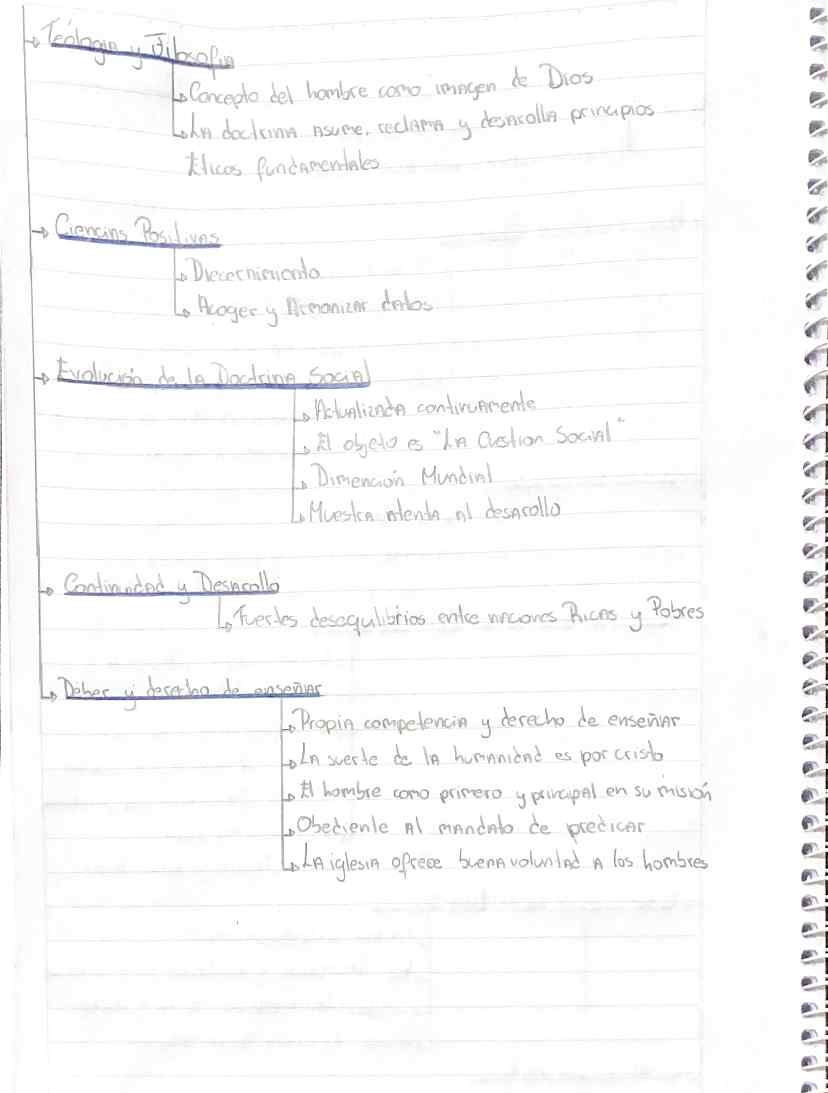 Teologia y Filosofia
Concepto del hombre como imagen de Dios
La doctrina asume, reclama y desarolla principios
Eticos fundamentales
Ciencias Positivas
Dicernimiento
Acoger y Armonizar datos
Evolución de la Doctrina Social
Actualizada continuamente
El objeto es "La Cuestion Social"
Dimención Mundial
Muestra atenta al desarollo
Continuidad y Desarollo
Fuertes desequilibrios entre naciones Ricas y Pobres
Deber y derecho de enseñar
Propia competencia y derecho de enseñar
La suerte de la humanidad es por cristo
El hombre como primero y principal en su misión
Obediente al mandato de predicar
La iglesia ofrece buena voluntad a los hombres